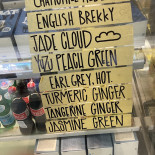 CHAMOMILE
ENGLISH BREKKY
JADE CLOUD
YUZU PEACH GREEN
EARL GREY, HOT
TURMERIC GINGER
TANGERINE GINGER
JASMINE GREEN